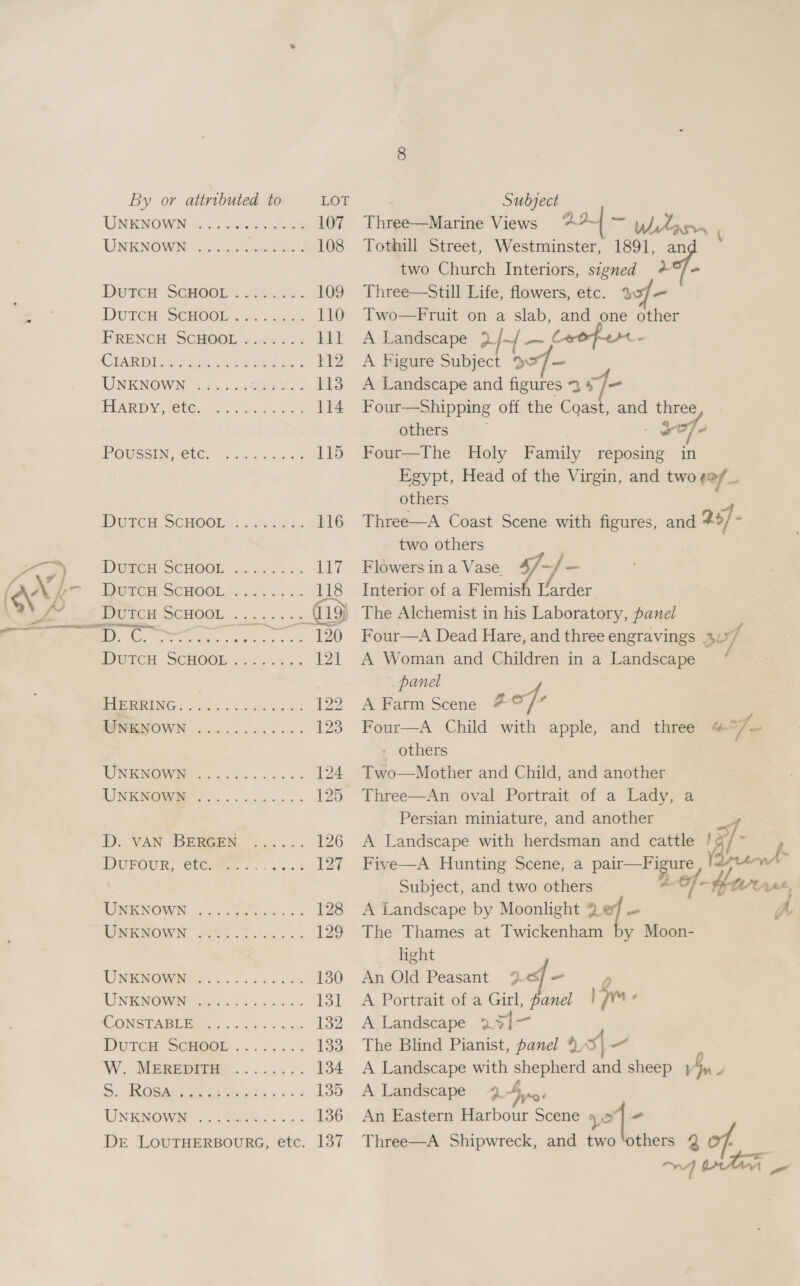 8
By or attributed to LOT Subject
UNKNOWN ............ 107 Three—Marine Views 22/-
UNKNOWN ............ 108 Tothill Street, Westminster, 1891, and
two Church Interiors, signed
DUTCH SCHOOL ........ 109 Three—Still Life, flowers, etc.
DUTCH SCHOOL ........ 110 Two—Fruit on a slab, and one other
FRENCH SCHOOL ....... 111 A Landscape 2/-/- Cooper
CIARDI ............... 112 A Figure Subject
UNKNOWN ............ 113 A Landscape and figures
HARDY, etc. .......... 114 Four—Shipping off the Coast, and three
others
POUSSIN, etc. ......... 115 Four—The Holy Family reposing in
Egypt, Head of the Virgin, and two
others
DUTCH SCHOOL ........ 116 Three—A Coast Scene with figures, and 25/-
two others
DUTCH SCHOOL ........ 117 Flowers in a Vase
DUTCH SCHOOL ........ 118 Interior of a Flemish Larder
DUTCH SCHOOL ........ 119 The Alchemist in his Laboratory, panel
D. C. ................ 120 Four—A Dead Hare, and three engravings
DUTCH SCHOOL ........ 121 A Woman and Children in a Landscape
panel
HERRING .............. 122 A Farm Scene 20/-
UNKNOWN ............ 123 Four—A Child with apple, and three
others
UNKNOWN ............ 124 Two—Mother and Child, and another
UNKNOWN ............ 125 Three—An oval Portrait of a Lady, a
Persian miniature, and another
D. VAN BERGEN ...... 126 A Landscape with herdsman and cattle
DUFOUR, etc. ......... 127 Five—A Hunting Scene, a pair—Figure
Subject, and two others
UNKNOWN ............ 128 A Landscape by Moonlight
UNKNOWN ............ 129 The Thames at Twickenham by Moon-
light
UNKNOWN ............ 130 An Old Peasant
UNKNOWN ............ 131 A Portrait of a Girl, panel
CONSTABLE ........... 132 A Landscape
DUTCH SCHOOL ........ 133 The Blind Pianist, panel
W. MEREDITH ........ 134 A Landscape with shepherd and sheep
S. ROSA .............. 135 A Landscape
UNKNOWN ............ 136 An Eastern Harbour Scene
DE LOUTHERBOURG, etc. 137 Three—A Shipwreck, and two others